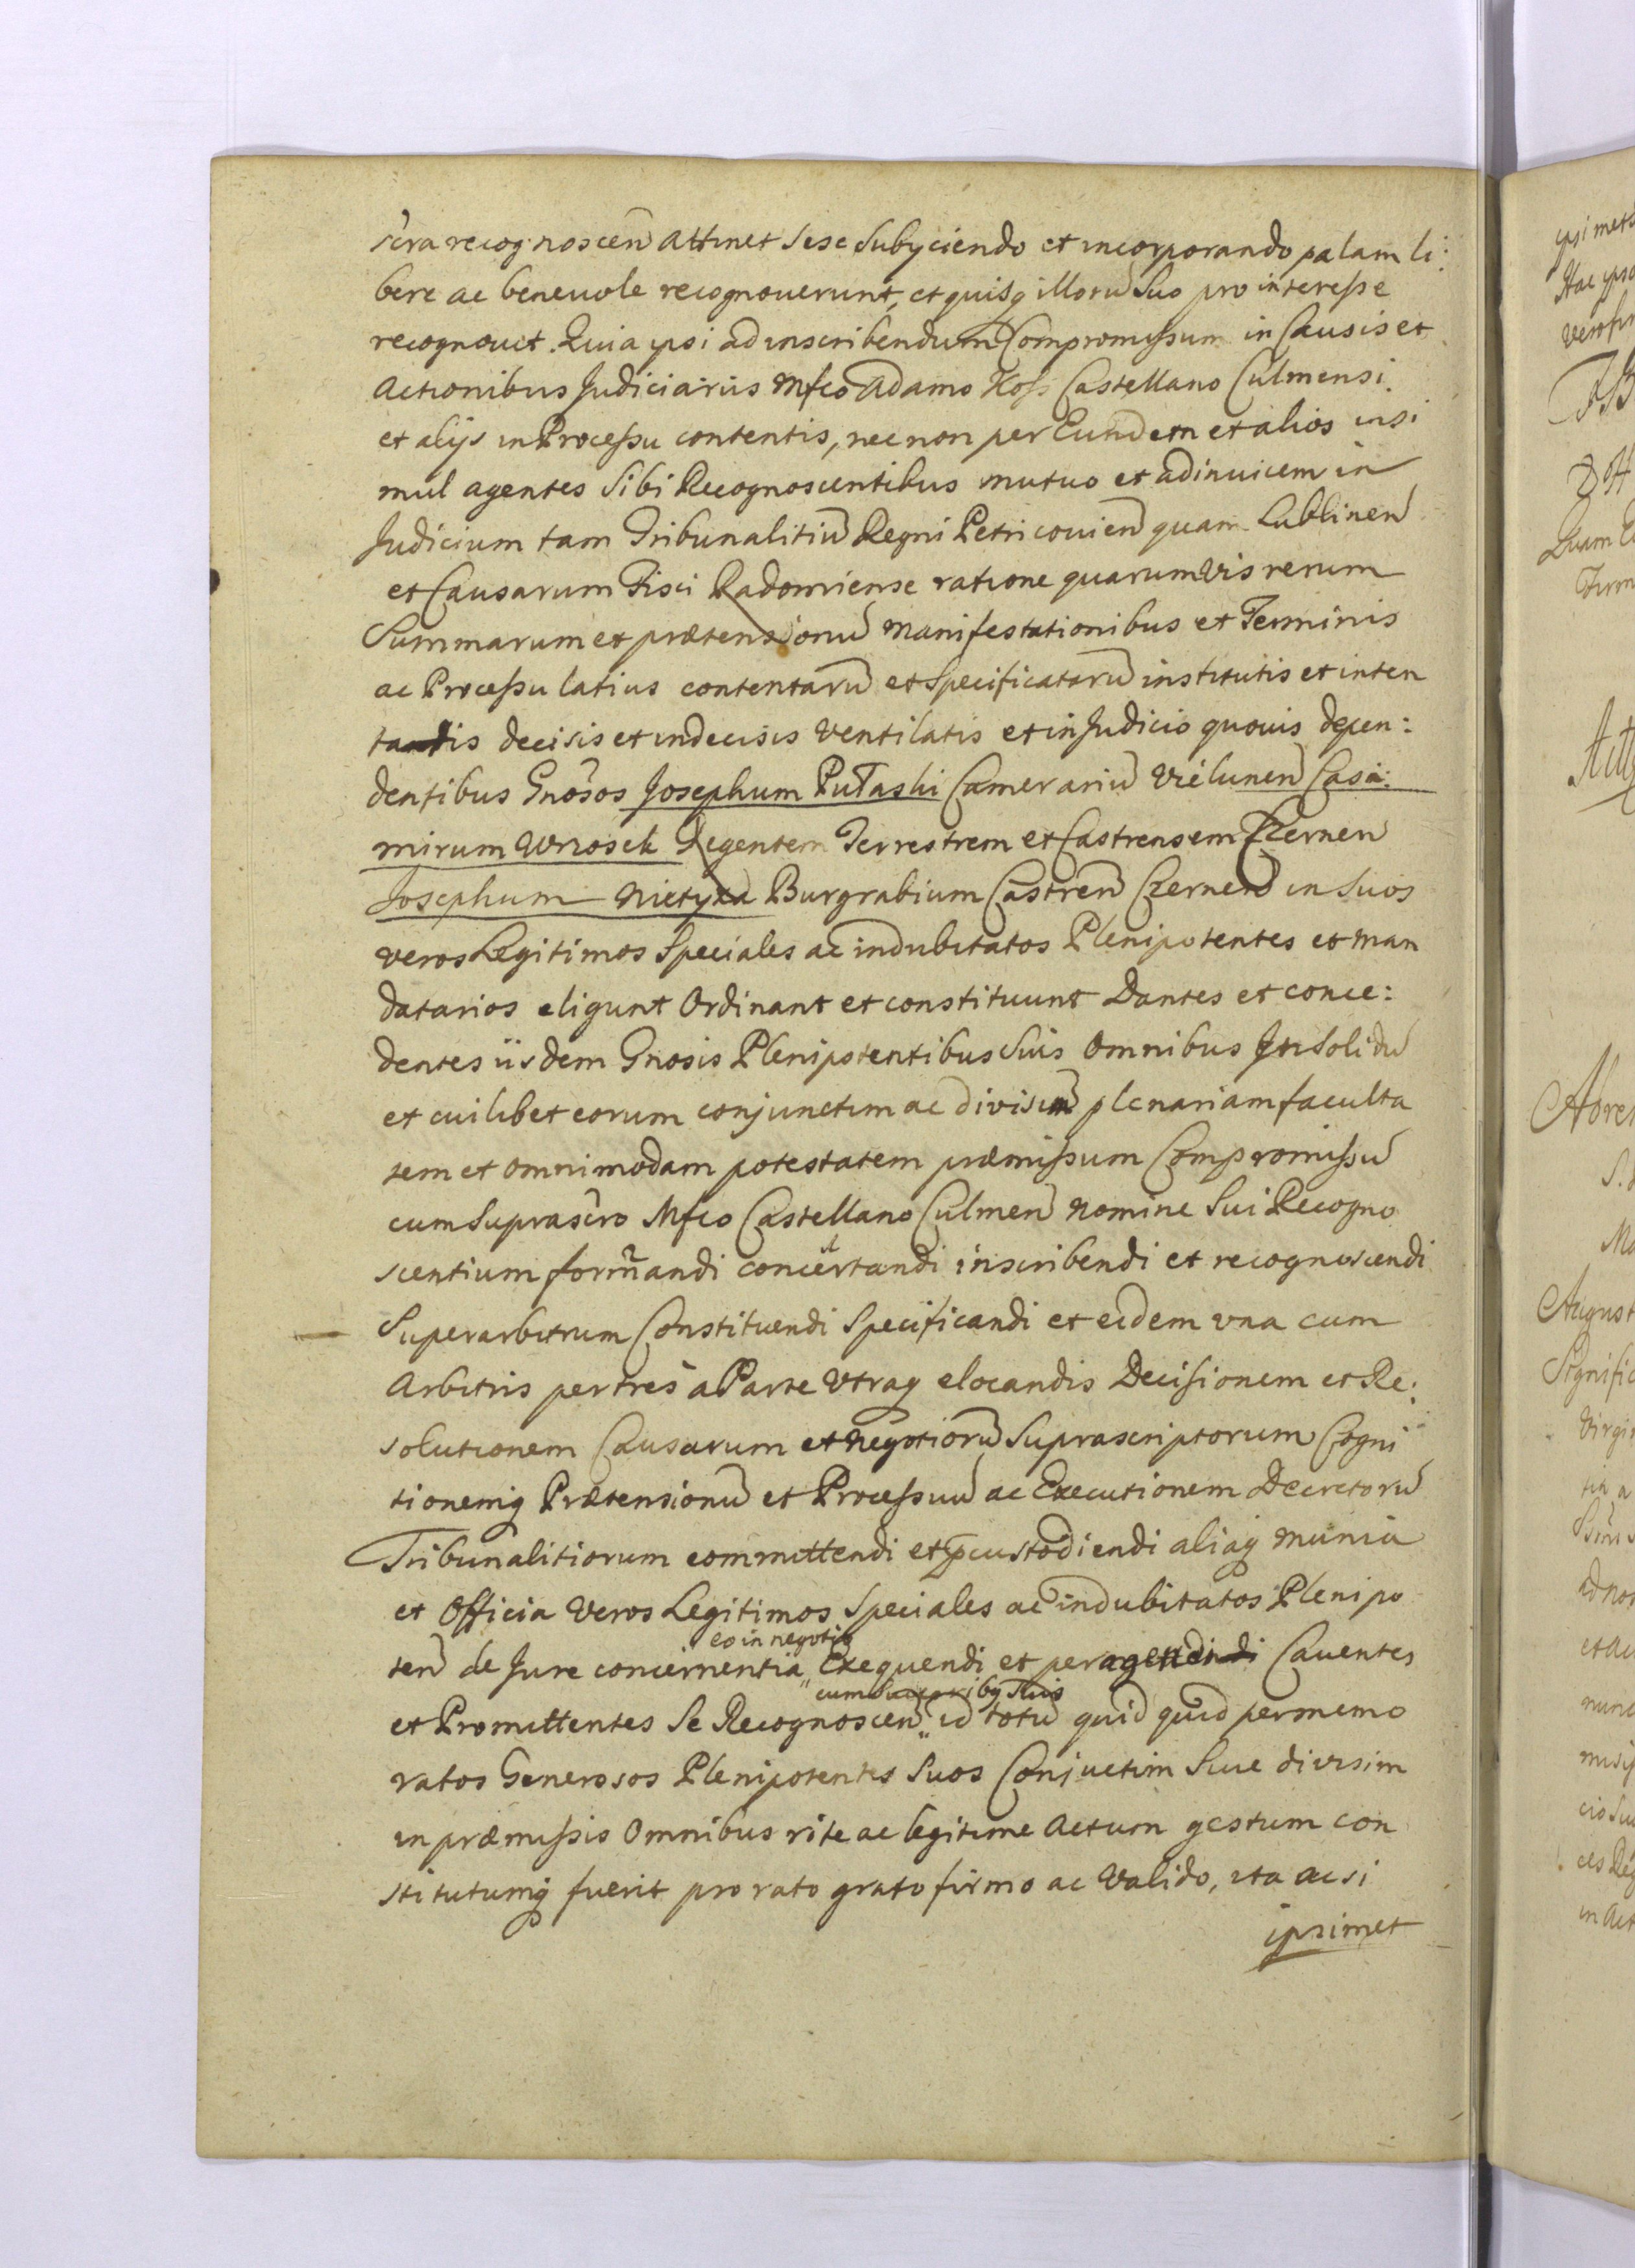 scra recognoscen attinet sese Subyciendo et incorporando palam li:
bere ac beneuole recognouerunt, et quisq illoru Suo pro interesse
recognouit. Quia ipsi ad inscribendum Compromissum in Causis et
Actionibus Judiciariis Mfco Adamo Koss Castellano Culmensi
et alijs in Processu contentis, nec non per Eundem et alios insi
mul agentes Sibi Recognoscentibus mutuo et adinuicem in
Judicium tam Tribunalitiu Regni Petricouien quam Lublinen
et Causarum Fisci Radomiense ratione quarumvis rerum
Summarum et prætensionu Manifestationibus et Terminis
ac Processu latius contentaru et Specificataru institutis et inten
tandis decisis et indecisis Ventilatis et in Judicio quouis depen:
dentibus Gnosos Josephum Putaski Camerariu Vielunen Casi:
mirum Wrosek Regentem Terrestrem et Castrensem Czernen
Josephum Nietyxa Burgrabium Castren Czernen in Suos
veros Legitimos Speciales ac indubitatos Plenipotentes et Man
datarios eligunt Ordinant et constituunt Dantes et conce:
dentes iisdem Gnosis Plenipotentibus Suis Omnibus In Solidu
et cuilibet eorum conjunctim ac divisim plenariam faculta
tem et omnimodam potestatem præmissum Compromissu
cum Suprascro Mfco Castellano Culmen Nomine Sui Recogno
scentium formandi concertandi inscribendi et recognoscendi
Superarbitrum Constituendi Specificandi et eidem vna cum
Arbitris per tres a Parte Vtraq elocandis Decisionem et Re:
solutionem Causarum et Negotioru Suprascriptorum Cogni
tionemq Prætensionu et Processuu ac Executionem Decretoru
Tribunalitiorum committendi et pcustodiendi aliaq Munia
et Officia Veros Legitimos Speciales ac indubitatos Plenipo
eo in negotio
ten de Jure concernentia Exequendi et peragendi Cauentes
cum Suis
et Promittentes Se Recognoscen id totu quid quid per memo
ratos Generosos Plenipotentes Suos Conjuctim Siue divisim
in præmissis Omnibus rite ac legitime Actum gestum con
stitutumq fuerit pro rato grato firmo ac Valido, ita ac si
ipsimet